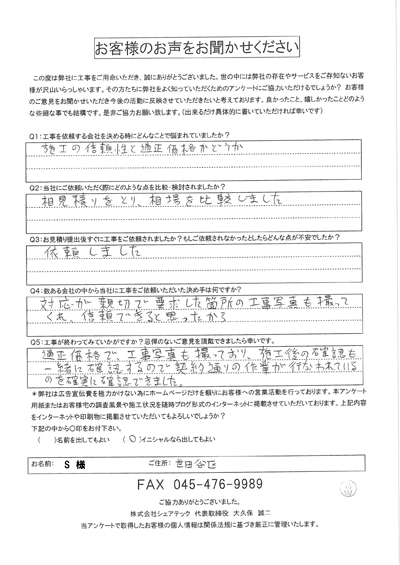 お客様のお声をお聞かせください
この度は弊社に工事をご用命いただき、誠にありがとうございました。世の中には弊社の存在やサービスをご存知ないお客
様が沢山いらっしゃいます。その方たちに弊社をよく知っていただくためのアンケートにご協力いただけるでしょうか? お客様
のご意見をお聞かせいただき今後の活動に反映させていただきたいと考えております。良かったこと、嬉しかったことどのよう
な些細な事でも結構です。是非ご協力お願い致します。(出来るだけ具体的に書いていただければ幸いです)
Q1:工事を依頼する会社を決める時にどんなことで悩まれていましたか?
施工の信頼性と適正価格かどうか
Q2:当社にご依頼いただく際にどのような点を比較・検討されましたか?
相見積りをとり、相場を比較しました
Q3:お見積り提出後すぐに工事をご依頼されましたか?もしご依頼されなかったとしたらどんな点が不安でしたか?
依頼しました
Q4:数ある会社の中から当社に工事をご依頼いただいた決め手は何ですか?
対応が親切で要求した箇所の工事写真も撮って
くれ、信頼できると思ったから
Q5:工事が終わってみていかがですか?忌憚のないご意見を頂戴できましたら幸いです。
適正価格で、工事写真も撮っており、施工後の確認も
一緒に確認するので契約通りの作業が行なわれている
のを確実に確認できました。
*弊社は広告宣伝費を極力かけない為にホームページだけを頼りにお客様への営業活動を行っております。本アンケート
用紙またはお客様宅の調査風景や施工状況を随時ブログ形式のインターネットに掲載させていただいております。上記内容
をインターネットや印刷物に掲載させていただいてもよろしいでしょうか?
下記の中から○印をお付下さい。
( )名前を出してもよい (○)イニシャルなら出してもよい
お名前: S 様 ご住所: 世田谷区
FAX 045-476-9989
ご協力ありがとうございました。
株式会社シェアテック 代表取締役 大久保 誠二
当アンケートで取得したお客様の個人情報は関係法規に基づき厳正に管理いたします。